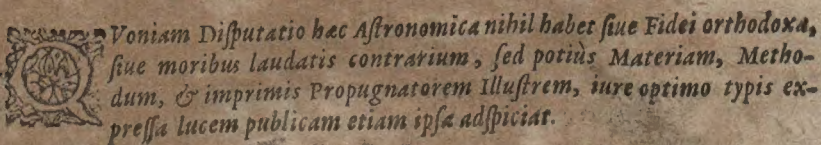 QVoniam Diſputatio hæc Aſtronomica nihil habet ſiue Fidei orthodoxæ,
ſiue moribus laudatis contrarium, ſed potiùs Materiam, Metho-
dum, & imprimis Propugnatorem Illuſtrem, iure optimo typis ex-
preſſa lucem publicam etiam ipſa adſpiciat.